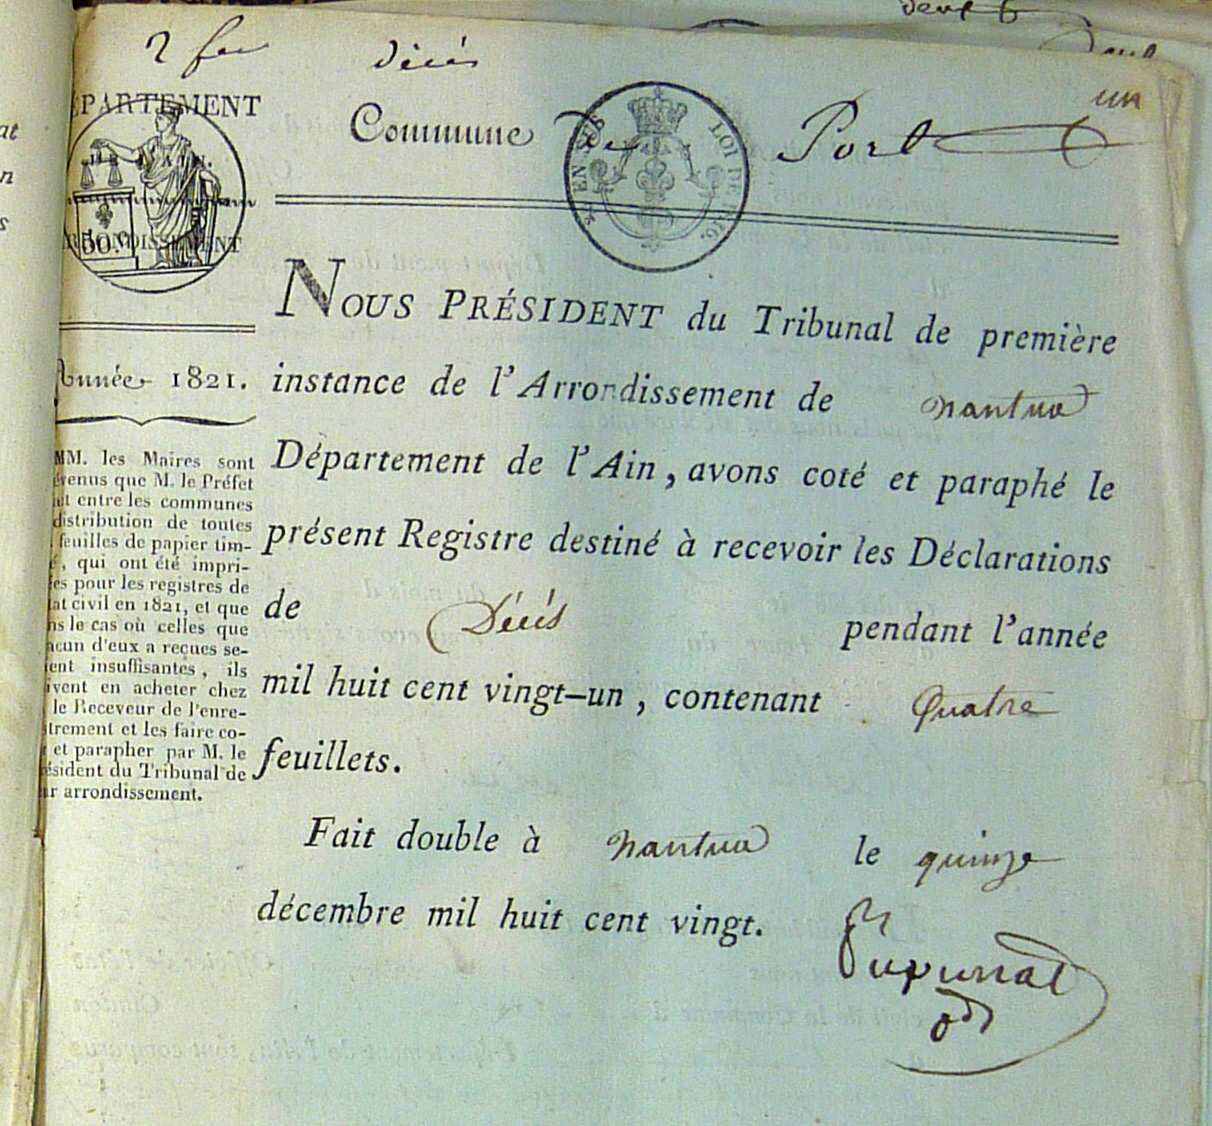 décès
un
DÉPARTEMENT
Commune de Port
EN SUS
LOI DE 1816.
50.c
ARRONDISSEMENT
Année 1821.
MM. les Maires sont
évenus que M. le Préfet
ait entre les communes
distribution de toutes
feuilles de papier tim-
é, qui ont été impri-
ées pour les registres de
at civil en 1821, et que
ns le cas où celles que
acun d'eux a reçues se-
ient insuffisantes, ils
ivent en acheter chez
le Receveur de l'enre-
strement et les faire co-
et parapher par M. le
ésident du Tribunal de
ur arrondissement.
NOUS PRÉSIDENT du Tribunal de première
instance de l'Arrondissement de nantua
Département de l'Ain, avons coté et paraphé le
présent Registre destiné à recevoir les Déclarations
de Décès pendant l'année
mil huit cent vingt-un, contenant Quatre
feuillets.
Fait double à nantua le quinze
décembre mil huit cent vingt.